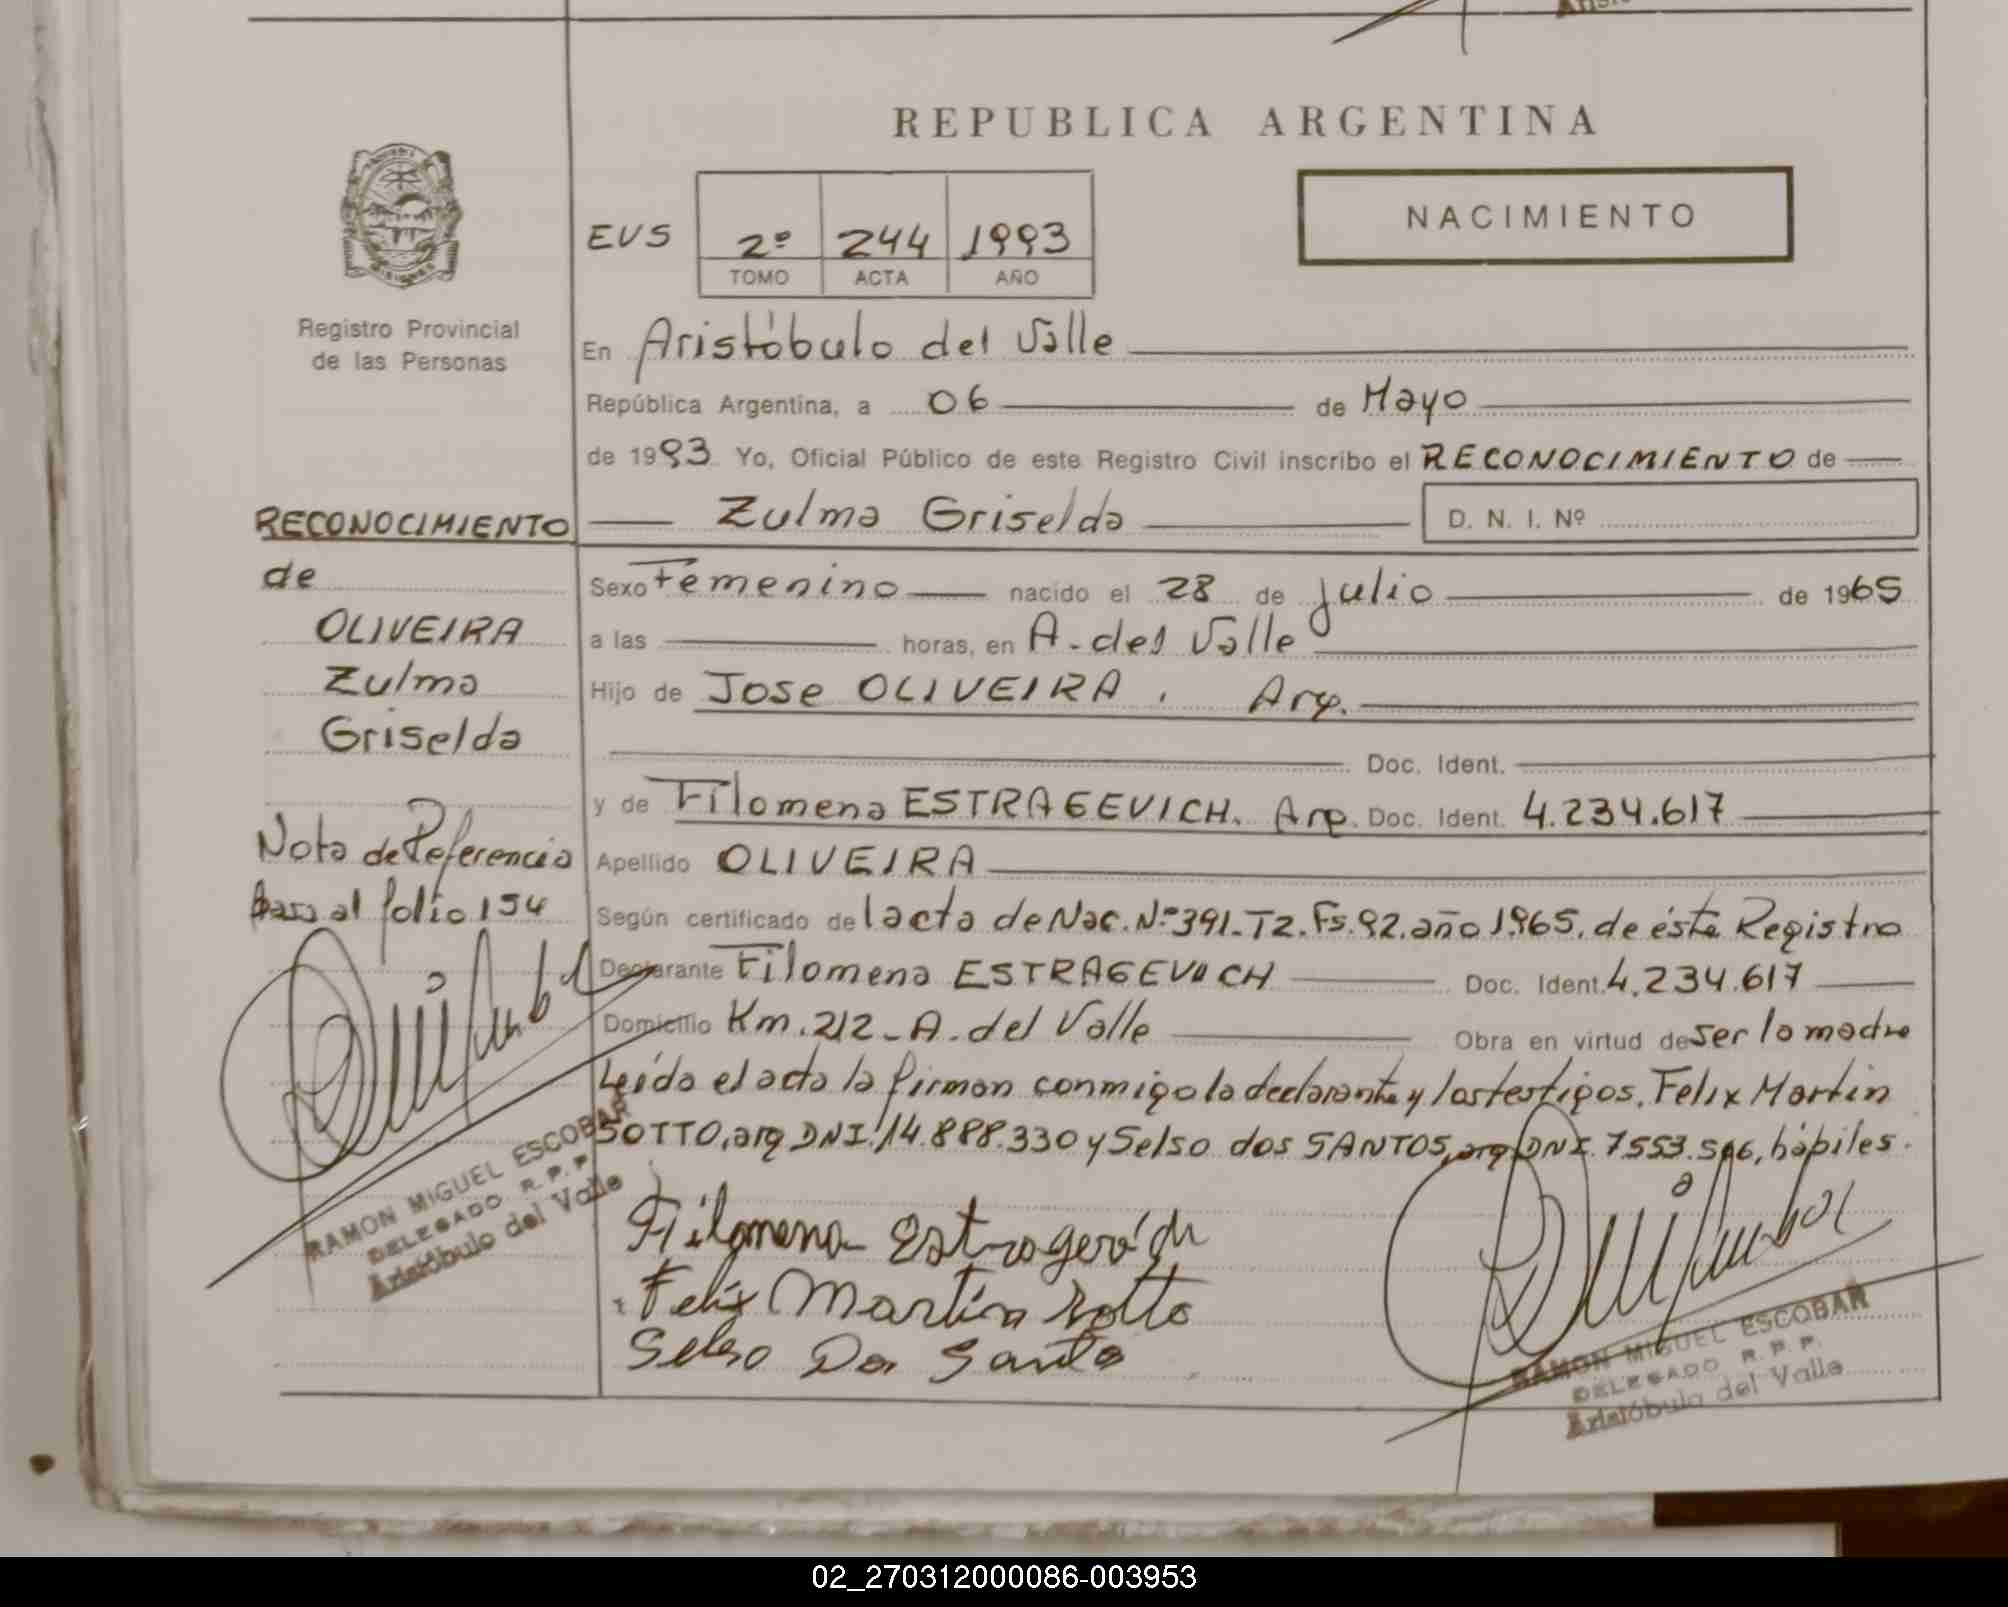 REPUBLICA ARGENTINA
NACIMIENTO
EVS 2º 244 1993
TOMO ACTA AÑO
Registro Provincial
de las Personas
En Aristóbulo del Valle
República Argentina, a 06 de Mayo
de 1993 Yo, Oficial Público de este Registro Civil inscribo el RECONOCIMIENTO de
Zulma Griselda D. N. I. Nº
Sexo Femenino nacido el 28 de julio de 1965
a las horas, en A. del Valle
Hijo de Jose OLIVEIRA. Arg.
Doc. Ident.
y de Filomena ESTRAGEVICH. Arg. Doc. Ident. 4.234.617
Apellido OLIVEIRA
Según certificado de l acta de Nac. Nº 391. T2. Fs. 92. año 1965. de éste Registro
Declarante Filomena ESTRAGEVICH Doc. Ident. 4.234.617
Domicilio Km. 212 - A. del Valle Obra en virtud de ser la madre
Leída el acta la firman conmigo la declarante y los testigos, Felix Martin
SOTTO, arg DNI. 14.888.330 y Selso dos SANTOS, arg DNI. 7553.506, hábiles.
Filomena Estragevich
Felix Martin Sotto
Selso Dos Santo
RAMON MIGUEL ESCOBAR
DELEGADO R. P. P.
Aristóbulo del Valle
RECONOCIMIENTO
de
OLIVEIRA
Zulma
Griselda
Nota de Referencia
pasa al folio 154
RAMON MIGUEL ESCOBAR
DELEGADO R. P. P.
Aristóbulo del Valle
02_270312000086-003953